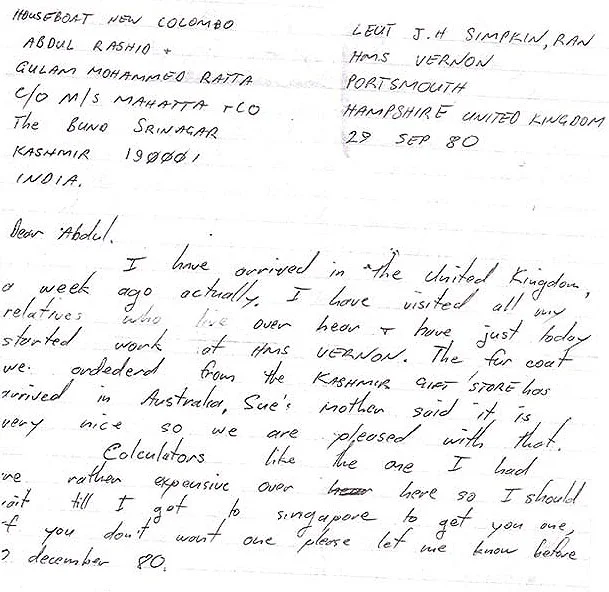 HOUSEBOAT NEW COLOMBO
ABDUL RASHID +
GULAM MOHAMMED RATTA
C/O M/S MAHATTA + CO
The BUND SRINAGAR
KASHMIR 190001
INDIA.
LEUT J.H SIMPKIN, RAN
HMS VERNON
PORTSMOUTH
HAMPSHIRE UNITED KINGDOM
29 SEP 80
Dear Abdul.
I have arrived in the United Kingdom,
a week ago actually. I have visited all my
relatives who live over hear + have just today
started work at HMS VERNON. The fur coat
we ordederd from the KASHMIR GIFT STORE has
arrived in Australia, Sue's mother said it is
very nice so we are pleased with that.
Calculators like the one I had
are rather expensive over here so I should
wait till I got to singapore to get you one,
if you don't want one please let me know before
december 80.